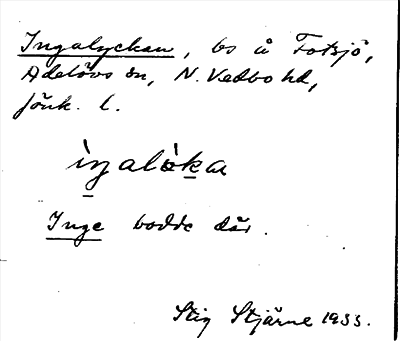 Ingalyckan, bs å Fotsjö,
Adelövs sn, N. Vedbo hd,
Jönk. l.
Inge bodde där.
Stig Stjärne 1933.